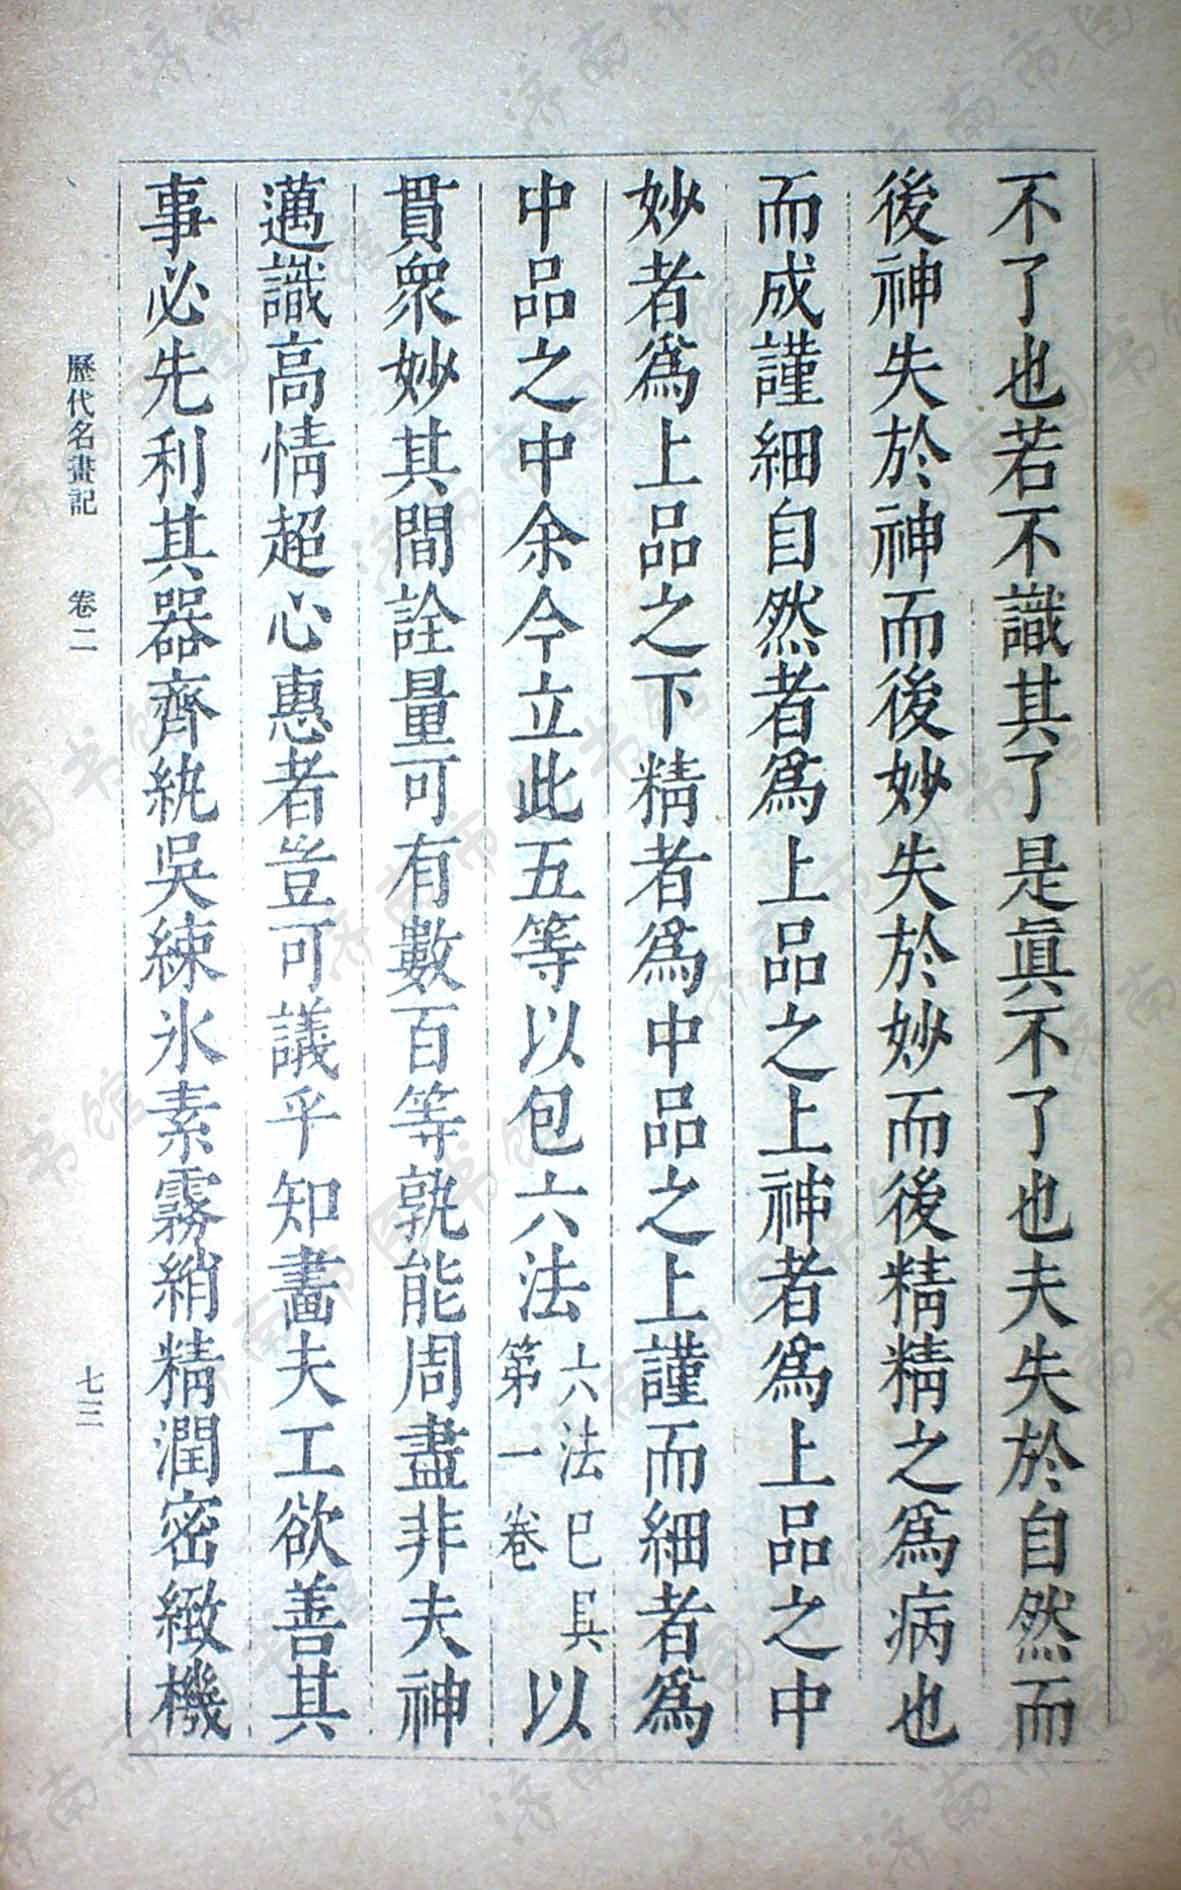 不了也若不識其了是眞不了也夫失於自然而
後神失於神而後妙失於妙而後精精之爲病也
而成謹細自然者爲上品之上神者爲上品之中
妙者爲上品之下精者爲中品之上謹而細者爲
中品之中余今立此五等以包六法六法已具第一卷以
貫衆妙其間詮量可有數百等孰能周盡非夫神
邁識高情超心惠者豈可議乎知畵夫工欲善其
事必先利其器齊紈吳練氷素霧綃精潤密緻機
歷代名畫記 卷二 七三
济南市图书馆